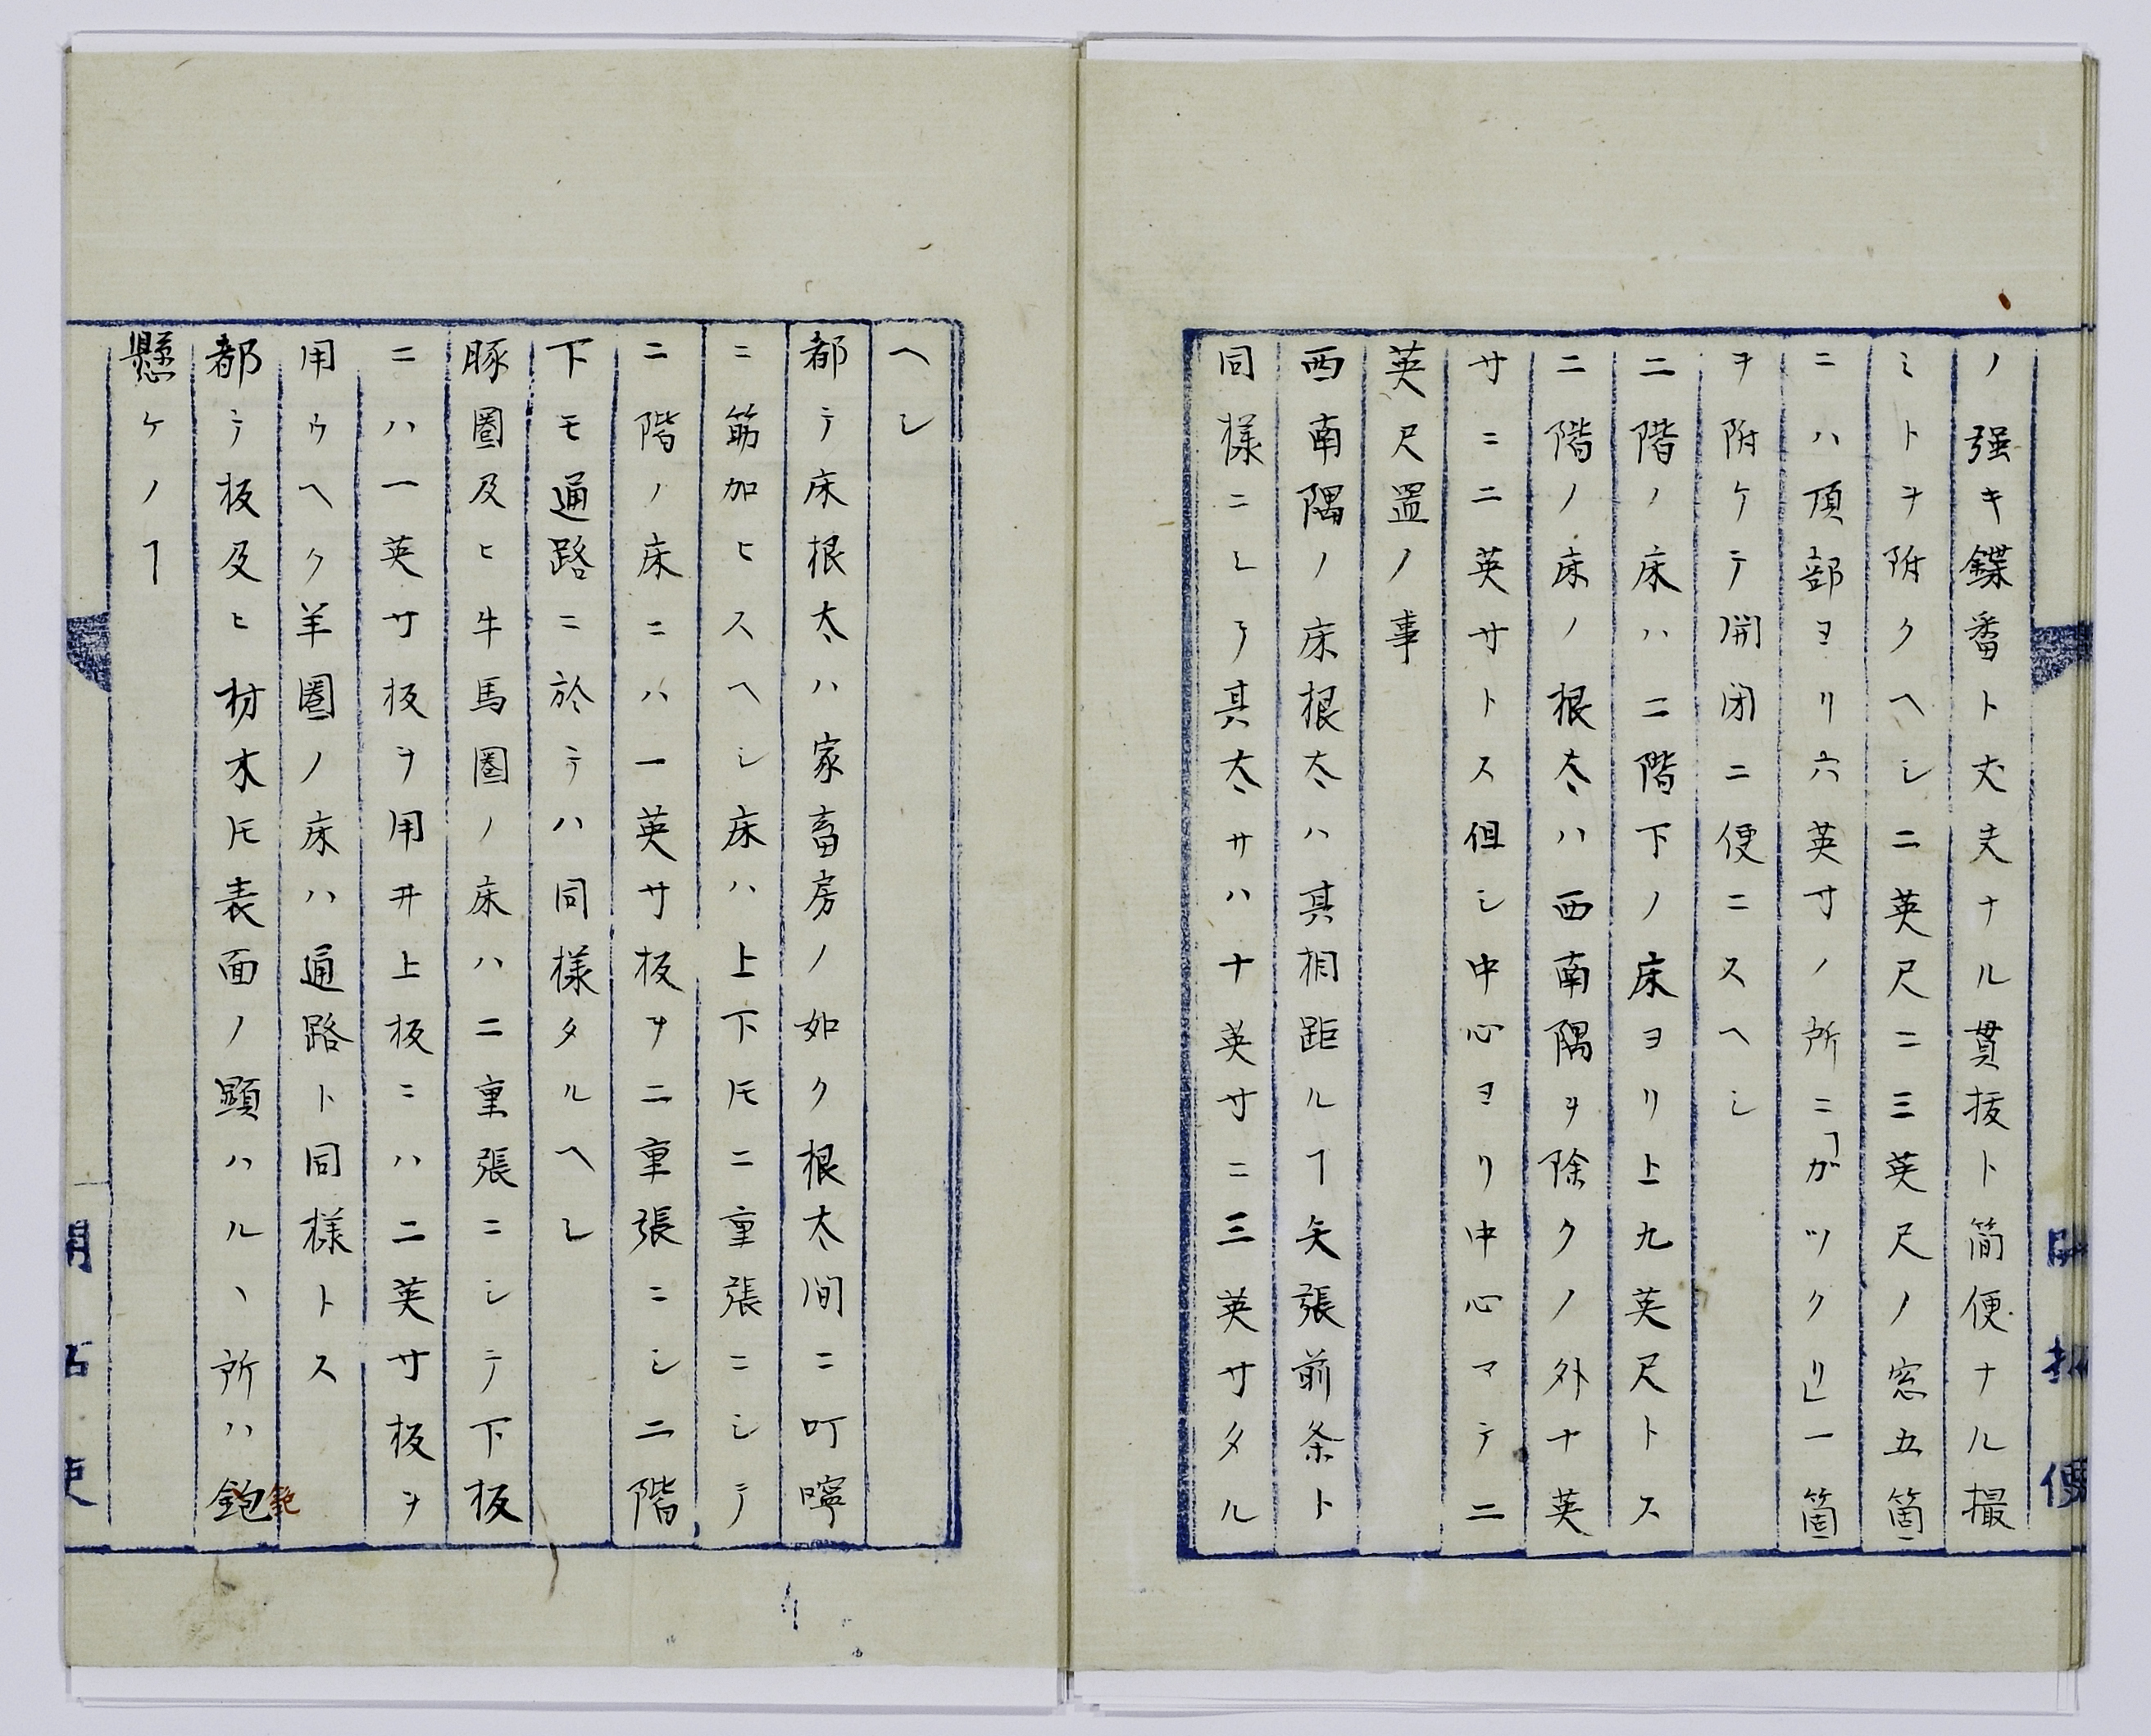 ノ強キ鏶番ト丈夫ナル貫抜ト簡便ナル撮
ミトヲ附クヘシ二英尺ニ三英尺ノ窓五箇
ニハ頂部ヨリ六英寸ノ所ニ「ガツクリ」一箇
ヲ附ケテ開閉ニ便ニスヘシ
二階ノ床ハ二階下ノ床ヨリ上九英尺トス
二階ノ床ノ根太ハ西南隅ヲ除クノ外十英
寸ニ二英寸トス但シ中心ヨリ中心マテ二
英尺置ノ事
西南隅ノ床根太ハ其相距ルヿ矢張前条ト
同様ニシテ其太サハ十英寸ニ三英寸タル
ヘシ
都テ床根太ハ家畜房ノ如ク根太間ニ叮嚀
ニ筋加ヒスヘシ床ハ上下𪜈二重張ニシテ
二階ノ床ニハ一英寸板ヲ二重張ニシ二階
下モ通路ニ於テハ同様タルヘシ
豚圏及ヒ牛馬圏ノ床ハ二重張ニシテ下板
ニハ一英寸板ヲ用井上板ニハ二英寸板ヲ
用ウヘク羊圏ノ床ハ通路ト同様トス
都テ板及ヒ材木𪜈表面ノ顕ハルヽ所ハ鉋
懸ケノヿ
開拓使